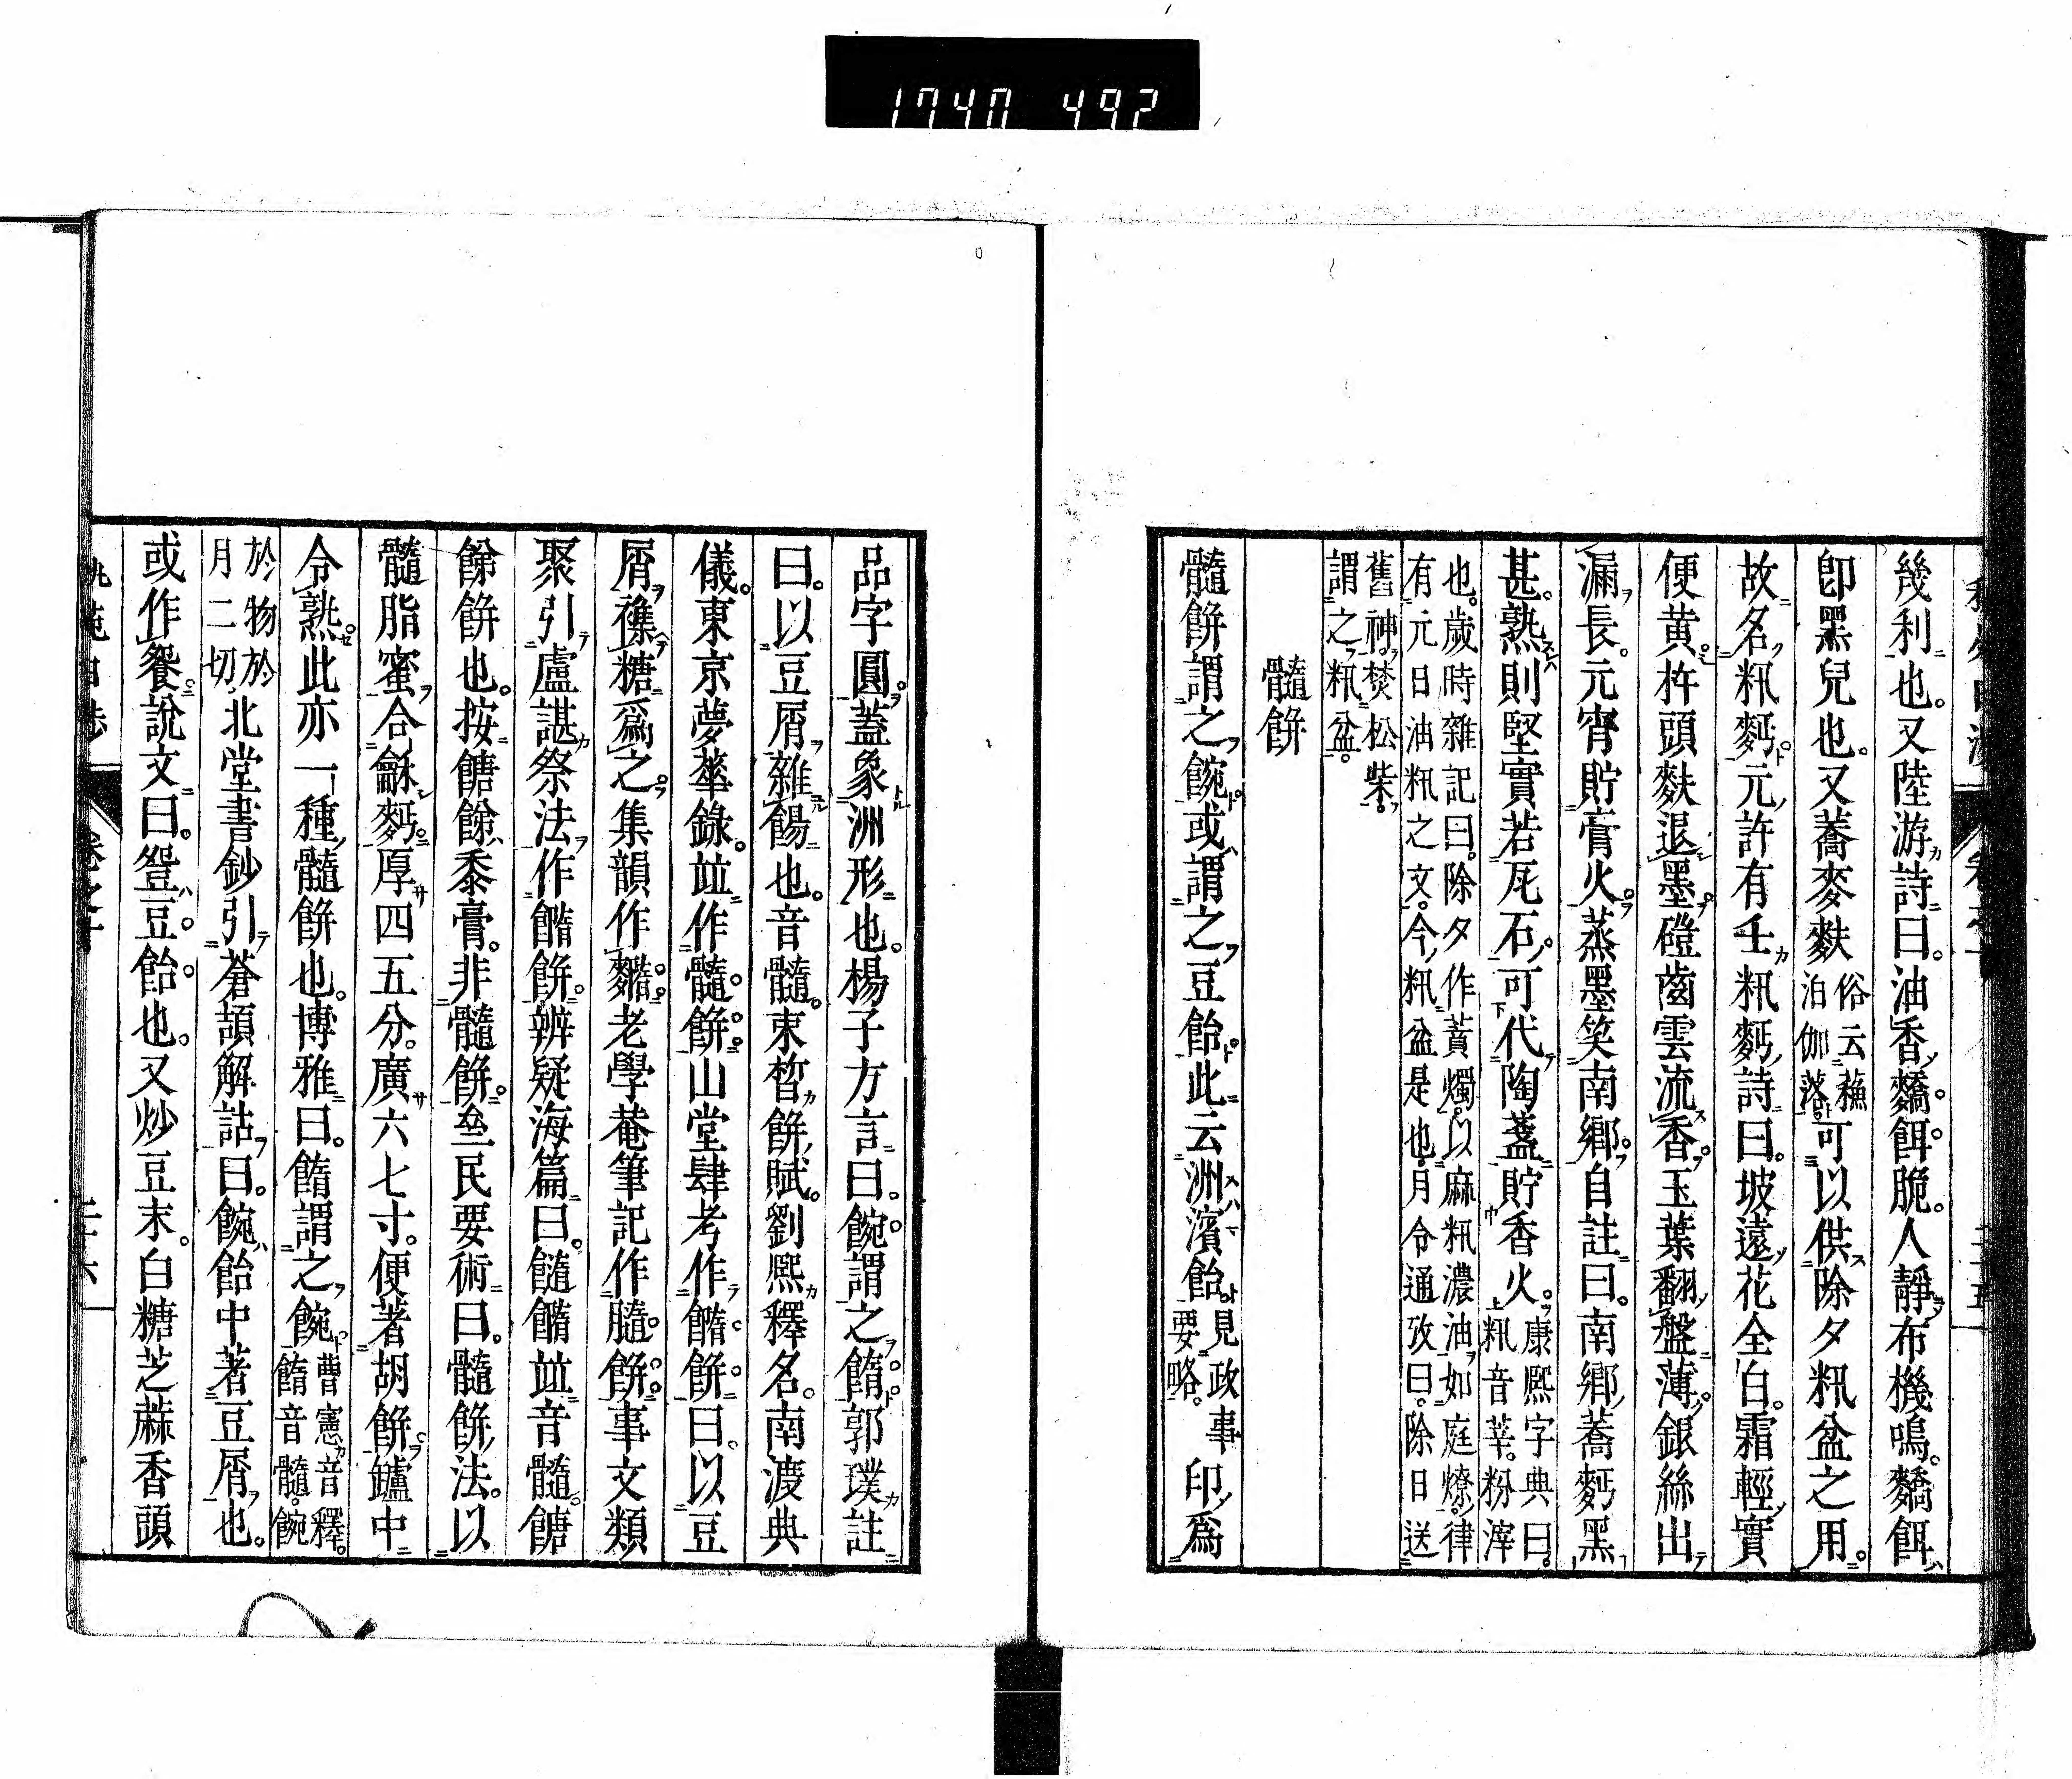 1740 492
幾利也。又陸游詩曰。油香䴭餌脆。人靜布機鳴。䴭餌
卽黑兒也。又蕎麥麩俗云蘓泊伽落可以供除夕籸盆之用。
故名籸麫。元許有壬籸麫詩曰。坡遠花全白。霜輕實
便黄。杵頭麩退墨。磑齒雲流香。玉葉翻盤薄。銀絲出
漏長。元宵貯膏火。蒸墨笑南鄕。自註曰。南鄕蕎麫黑
甚。熟則堅實若瓦石。可代陶盞貯香火。康熙字典曰。籸音莘。粉滓
也。歲時雜記曰。除夕作蕡燭。以麻籸濃油。如庭燎。律
有元日油籸之文。今籸盆是也。月令通攷曰。除日送
舊神。焚松柴。
謂之籸盆。
髓餅
髓餅謂之䬧。或謂之豆飴。此云洲濱飴。見政事要略。印爲
品字圓。蓋象洲形也。楊子方言曰。䬧謂之䭉。郭璞註
曰。以豆屑雜餳也。音髓。束晳餅賦。劉熙釋名。南渡典
儀。東京夢華錄。竝作髓餅。山堂肆考作䭉餅。曰。以豆
屑襍糖爲之。集韻作䴷。老學菴筆記作膸餅。事文類
聚引盧諶祭法作䭉餅。辨疑海篇曰。䭉竝音髓。餹
餘餅也。按餹餘黍膏。非髓餅。齊民要術曰。髓餅法。以
髓脂蜜合龢麫。厚四五分。廣六七寸。便著胡餅鑪中
令熟。此亦一種髓餅也。博雅曰。䭉謂之䬧。曹憲音釋。䭉音髓。䬧
於物於
月二切
北堂書鈔引蒼頡解詁曰。䬧飴中著豆屑也。
或作䬵。說文曰。䬵豆飴也。又炒豆末。白糖芝蔴香頭